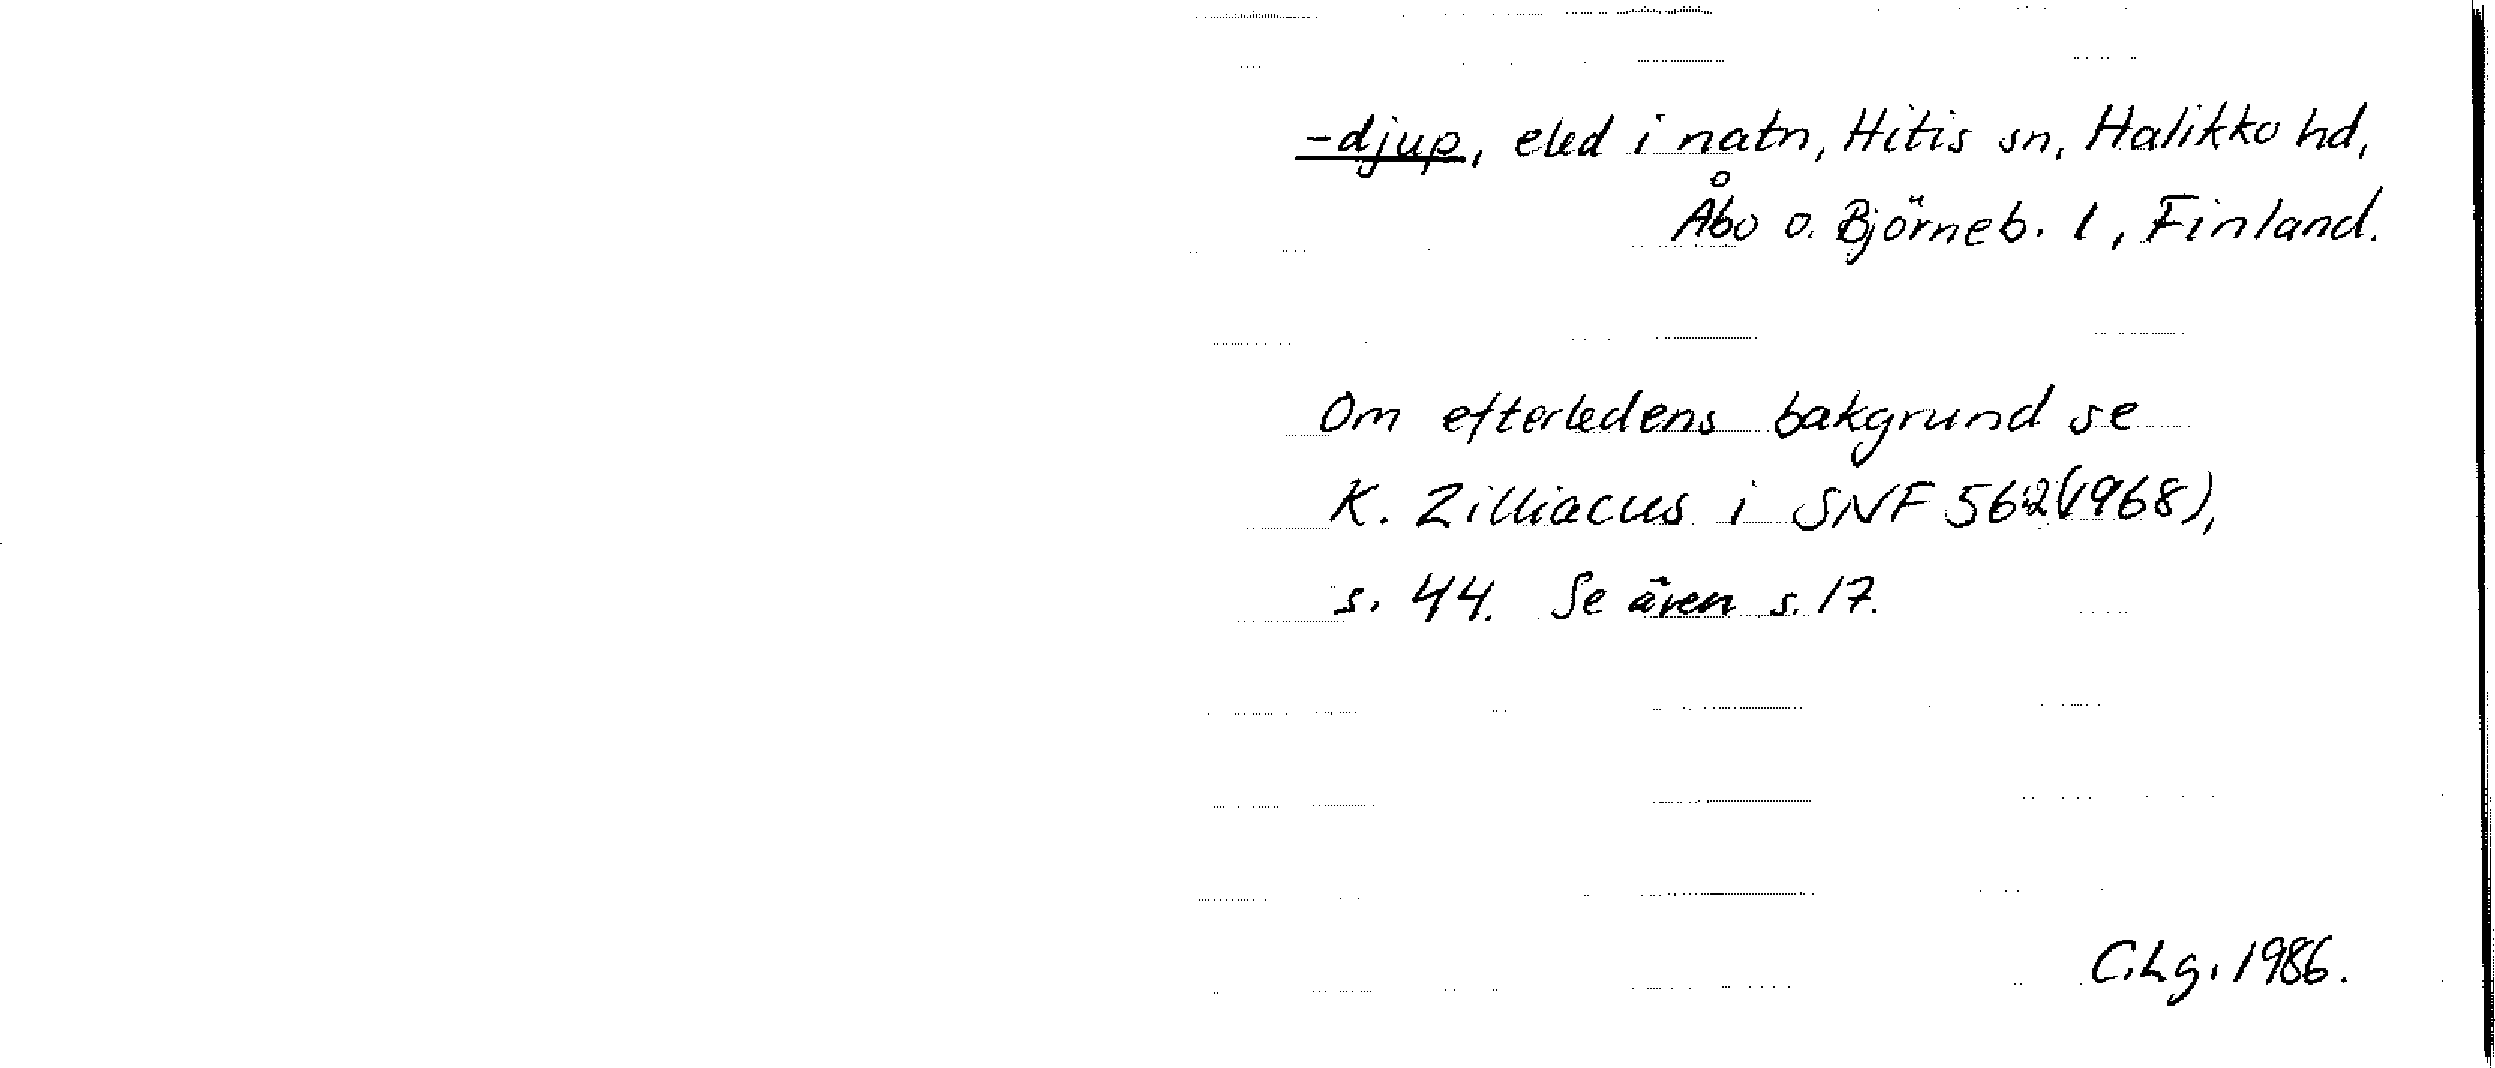 -djup, eled i natn, Hitis sn, Halikko hd,
Åbo o. Björneb. l, Finland.
Om efterledens bakgrund se
K. Zilliacus i SNF 562(1968),
s. 44. Se även s. 17.
C.Lg. 1986.